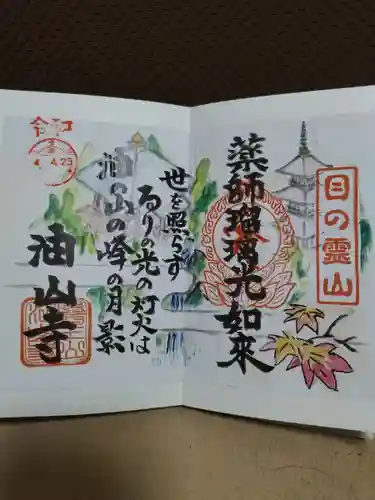 目の霊山
薬師瑠璃光如来
世を照らす
るりの光の灯火は
油山の峰の月影
油山寺
令和
4.4.23